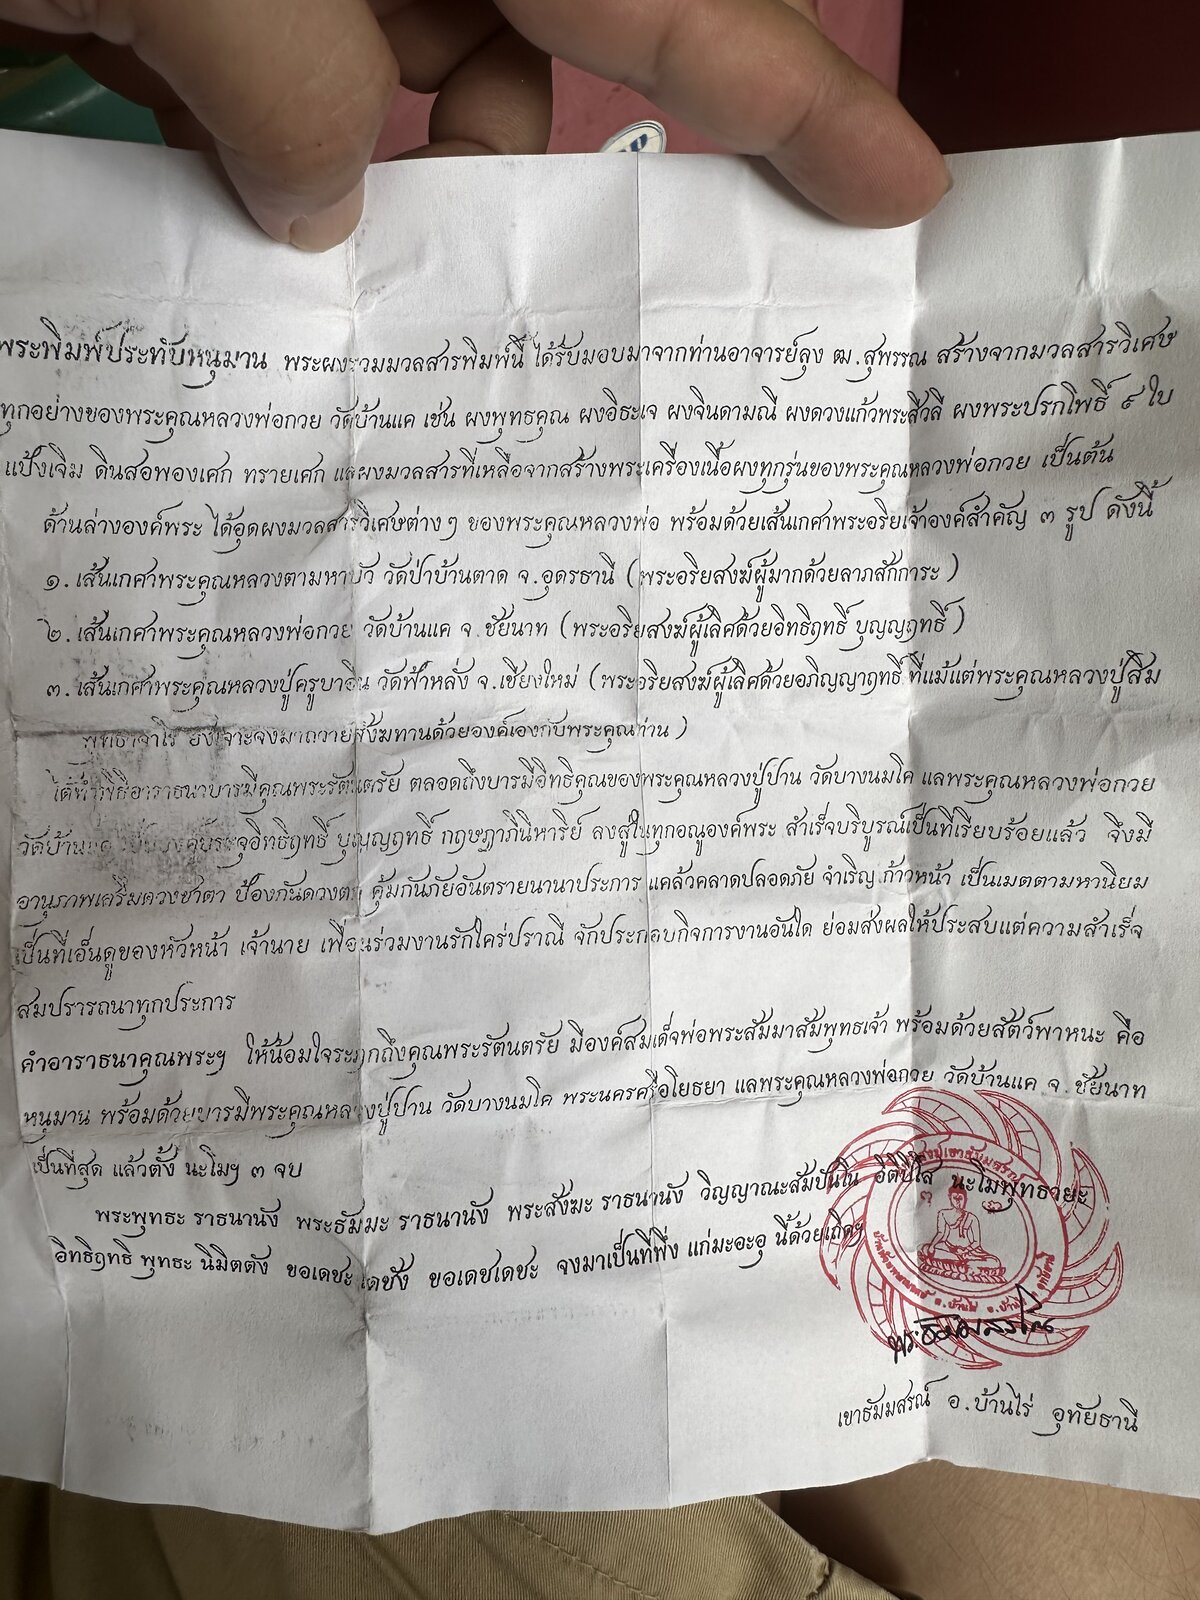 พระพิมพ์ประทับหนุมาน พระผงรวมมวลสารพิมพ์นี้ ได้รับมอบมาจากท่านอาจารย์ลุง ฒ.สุพรรณ สร้างจากมวลสารวิเศษ
ทุกอย่างของพระคุณหลวงพ่อกวย วัดบ้านแค เช่น ผงพุทธคุณ ผงอิธะเจ ผงจินดามณี ผงดวงแก้วพระสีวลี ผงพระปรกโพธิ์ ๙ ใบ
แป้งเจิม ดินสอพองเศก ทรายเศก แลผงมวลสารที่เหลือจากสร้างพระเครื่องเนื้อผงทุกรุ่นของพระคุณหลวงพ่อกวย เป็นต้น
ด้านล่างองค์พระ ได้อุดผงมวลสารวิเศษต่างๆ ของพระคุณหลวงพ่อ พร้อมด้วยเส้นเกศาพระอริยเจ้าองค์สำคัญ ๓ รูป ดังนี้
๑. เส้นเกศาพระคุณหลวงตามหาบัว วัดป่าบ้านตาด จ.อุดรธานี (พระอริยสงฆ์ผู้มากด้วยลาภสักการะ)
๒. เส้นเกศาพระคุณหลวงพ่อกวย วัดบ้านแค จ.ชัยนาท (พระอริยสงฆ์ผู้เลิศด้วยอิทธิฤทธิ์ บุญญฤทธิ์)
๓. เส้นเกศาพระคุณหลวงปู่ครูบาอิน วัดฟ้าหลั่ง จ.เชียงใหม่ (พระอริยสงฆ์ผู้เลิศด้วยอภิญญาฤทธิ์ ที่แม้แต่พระคุณหลวงปู่สิม
พุทธาจาโร ยังเจาะจงมาถวายสังฆทานด้วยองค์เองกับพระคุณท่าน)
ได้ทำพิธีอาราธนาบารมีคุณพระรัตนตรัย ตลอดถึงบารมีอิทธิคุณของพระคุณหลวงปู่ปาน วัดบางนมโค แลพระคุณหลวงพ่อกวย
วัดบ้านแค บรรจุอิทธิฤทธิ์ บุญญฤทธิ์ กฤษฎาภินิหาริย์ ลงสู่ในทุกอณูองค์พระ สำเร็จบริบูรณ์เป็นที่เรียบร้อยแล้ว จึงมี
อานุภาพเสริมดวงชาตา ป้องกันดวงตก คุ้มกันภัยอันตรายนานาประการ แคล้วคลาดปลอดภัย จำเริญก้าวหน้า เป็นเมตตามหานิยม
เป็นที่เอ็นดูของหัวหน้า เจ้านาย เพื่อนร่วมงานรักใคร่ปราณี จักประกอบกิจการงานอันใด ย่อมส่งผลให้ประสบแต่ความสำเร็จ
สมปรารถนาทุกประการ
คำอาราธนาคุณพระฯ ให้น้อมใจระฦกถึงคุณพระรัตนตรัย มีองค์สมเด็จพ่อพระสัมมาสัมพุทธเจ้า พร้อมด้วยสัตว์พาหนะ คือ
หนุมาน พร้อมด้วยบารมีพระคุณหลวงปู่ปาน วัดบางนมโค พระนครศรีอโยธยา แลพระคุณหลวงพ่อกวย วัดบ้านแค จ.ชัยนาท
เป็นที่สุด แล้วตั้ง นะโมฯ ๓ จบ
พระพุทธะ ราธนานัง พระธัมมะ ราธนานัง พระสังฆะ ราธนานัง วิญญาณะสัมปันโน อิติปิโส นะโมพุทธายะ
อิทธิฤทธิ พุทธะ นิมิตตัง ขอเดชะ เดชัง ขอเดชเดชะ จงมาเป็นที่พึ่ง แก่มะอะอุ นี้ด้วยเถิดฯ
เขาธัมมสรณ์ อ.บ้านไร่ อุทัยธานี